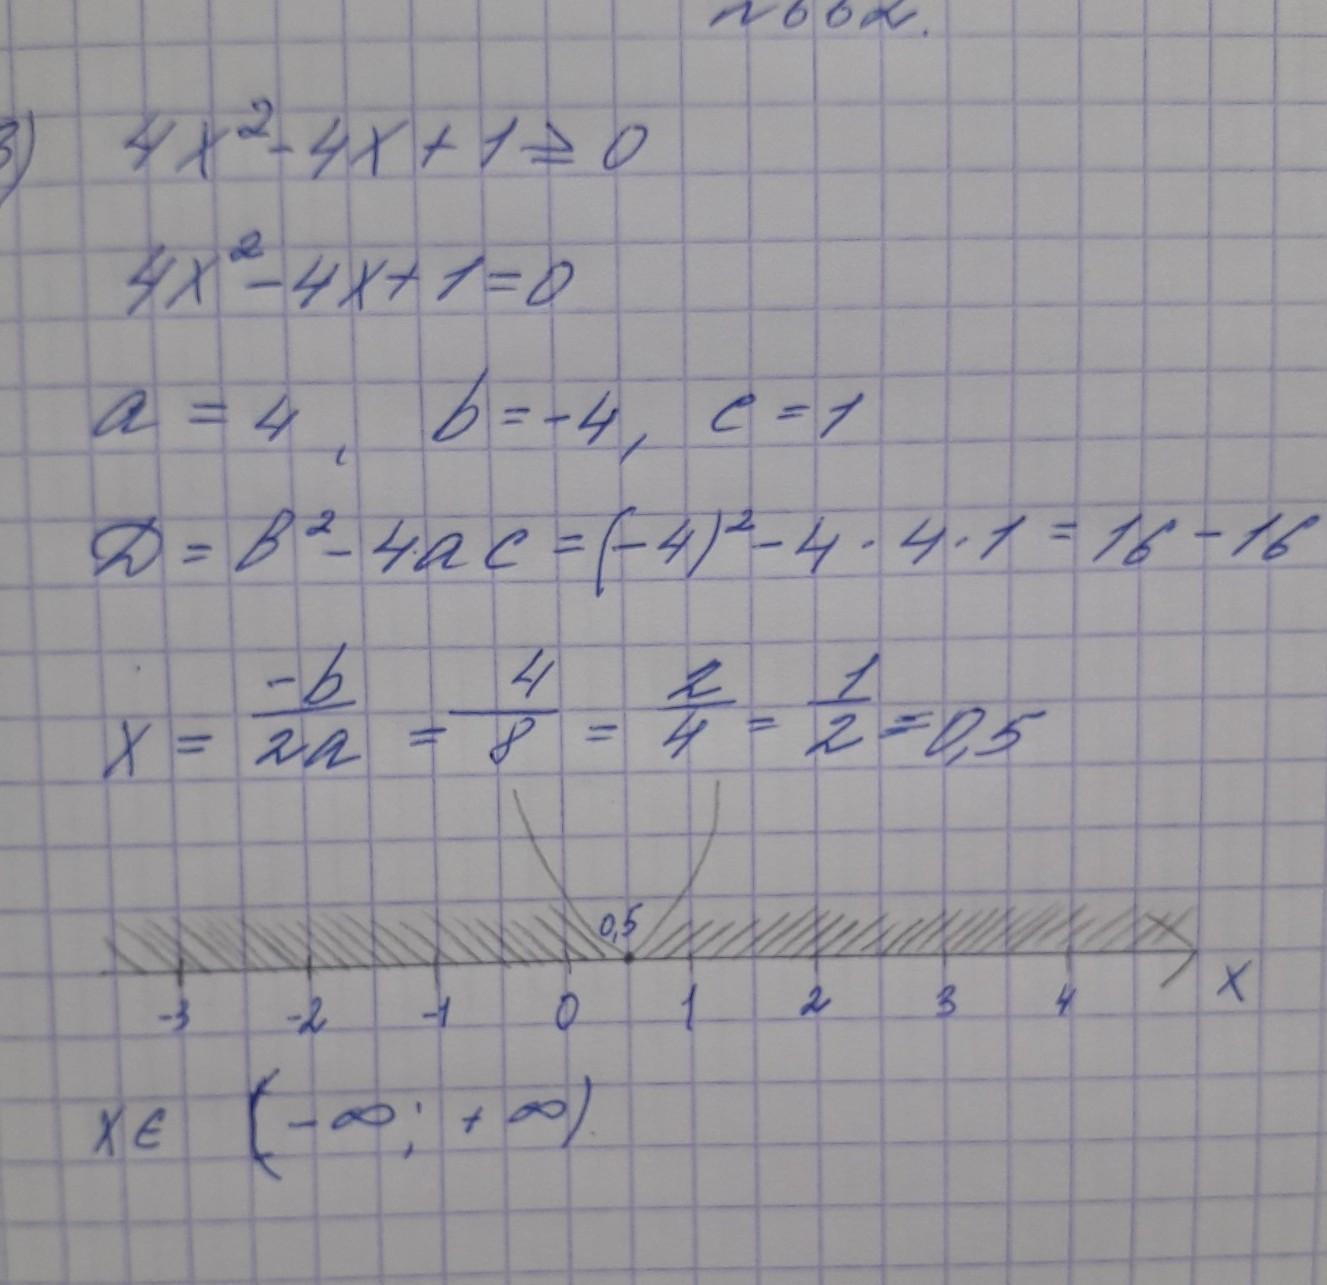 №662.
3) 4x² - 4x + 1 ≥ 0
4x² - 4x + 1 = 0
a = 4, b = -4, c = 1
D = b² - 4ac = (-4)² - 4 · 4 · 1 = 16 - 16
x = -b/2a = 4/8 = 2/4 = 1/2 = 0,5
0,5
-3 -2 -1 0 1 2 3 4 x
x ∈ (-∞; +∞)